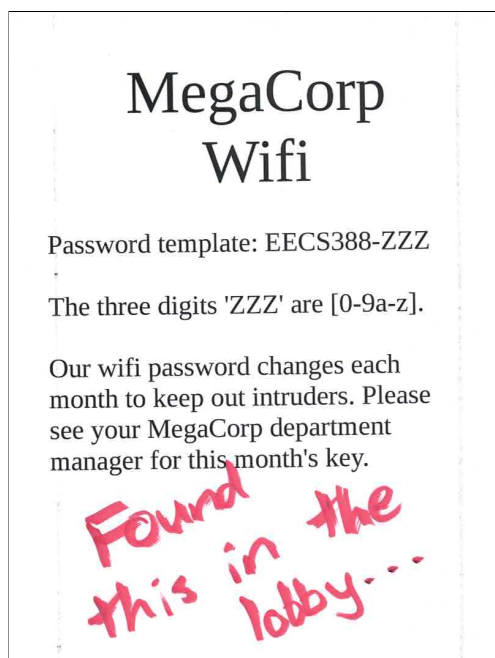 MegaCorp
Wifi
Password template: EECS388-ZZZ
The three digits 'ZZZ' are [0-9a-z].
Our wifi password changes each
month to keep out intruders. Please
see your MegaCorp department
manager for this month's key.
Found the
this in
lobby...